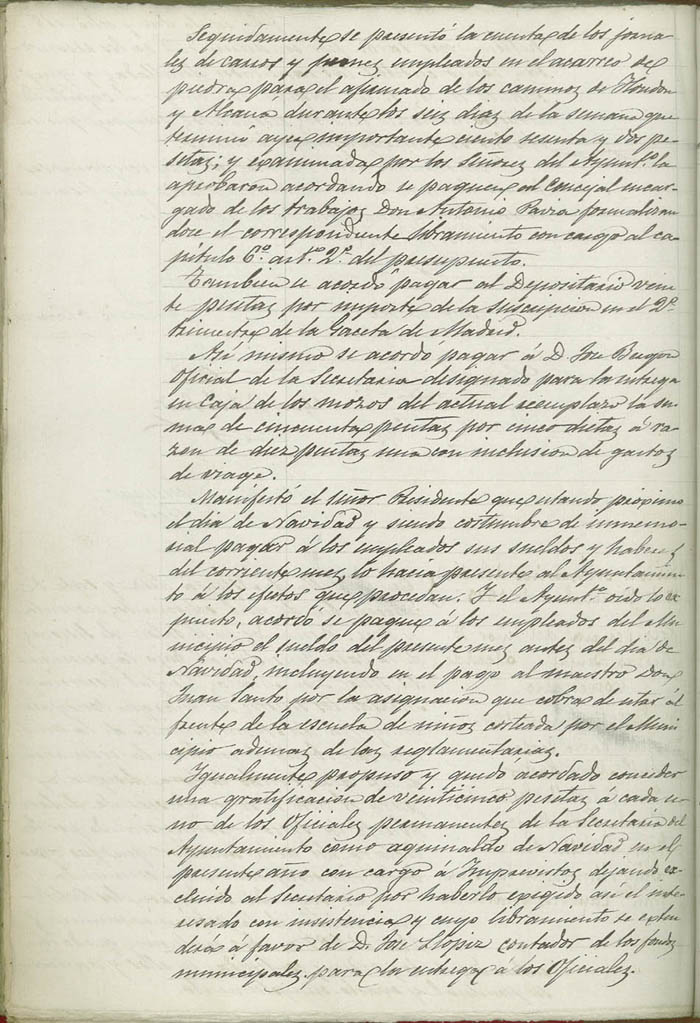 Seguidamente se presentó la cuenta de los jorna-
les de carros y peones empleados en el acarreo de
piedra para el afirmado de los caminos de Hondon
y Alcaná durante los seis dias de la semana que
terminó ayer importante ciento sesenta y dos pe-
setas; y examinada por los señores del Ayunt.º la
aprobaron acordando se paguen al Concejal encar-
gado de los trabajos Don Antonio Pavia formalizan
dose el correspondiente libramiento con cargo al ca-
pítulo 6.º art.º 2.º del presupuesto.
Tambien se acordó pagar al Depositario vein
te pesetas por importe de la suscripcion en el 2.º
trimestre de la Gaceta de Madrid.
Asi mismo se acordó pagar á D. Jose
Oficial de la Secretaria designado para la entrega
en Caja de los mozos del actual reemplazo la su-
ma de cincuenta pesetas por cinco dietas á ra-
zon de diez pesetas una con inclusion de gastos
de viage.
Manifestó el señor Presidente que estando próximo
el dia de Navidad y siendo costumbre de inmemo-
rial pagar á los empleados sus sueldos y haberes
del corriente mes, lo hacia presente al Ayuntamien-
to á los efectos que procedan. Y el Ayunt.º oido lo ex
puesto, acordó se pague á los empleados del Mu-
nicipio el sueldo del presente mes antes del dia de
Navidad, incluyendo en el pago al maestro Don
Juan Santo por la asignacion que cobra de estar al
frente de la escuela de niños costeada por el Muni
cipio ademas de las reglamentarias.
Igualmente propuso y quedó acordado conceder
una gratificacion de veinticinco pesetas á cada u-
no de los Oficiales permanentes de la Secretaria del
Ayuntamiento como aguinaldo de Navidad en el
presente año con cargo á Imprevistos dejando ex
cluido al Secretario por haberlo exigido asi el inte-
resado con insistencia y cuyo libramiento se exten
derá á favor de D. Jose Llopiz contador de los fondos
municipales para la entrega á los Oficiales.